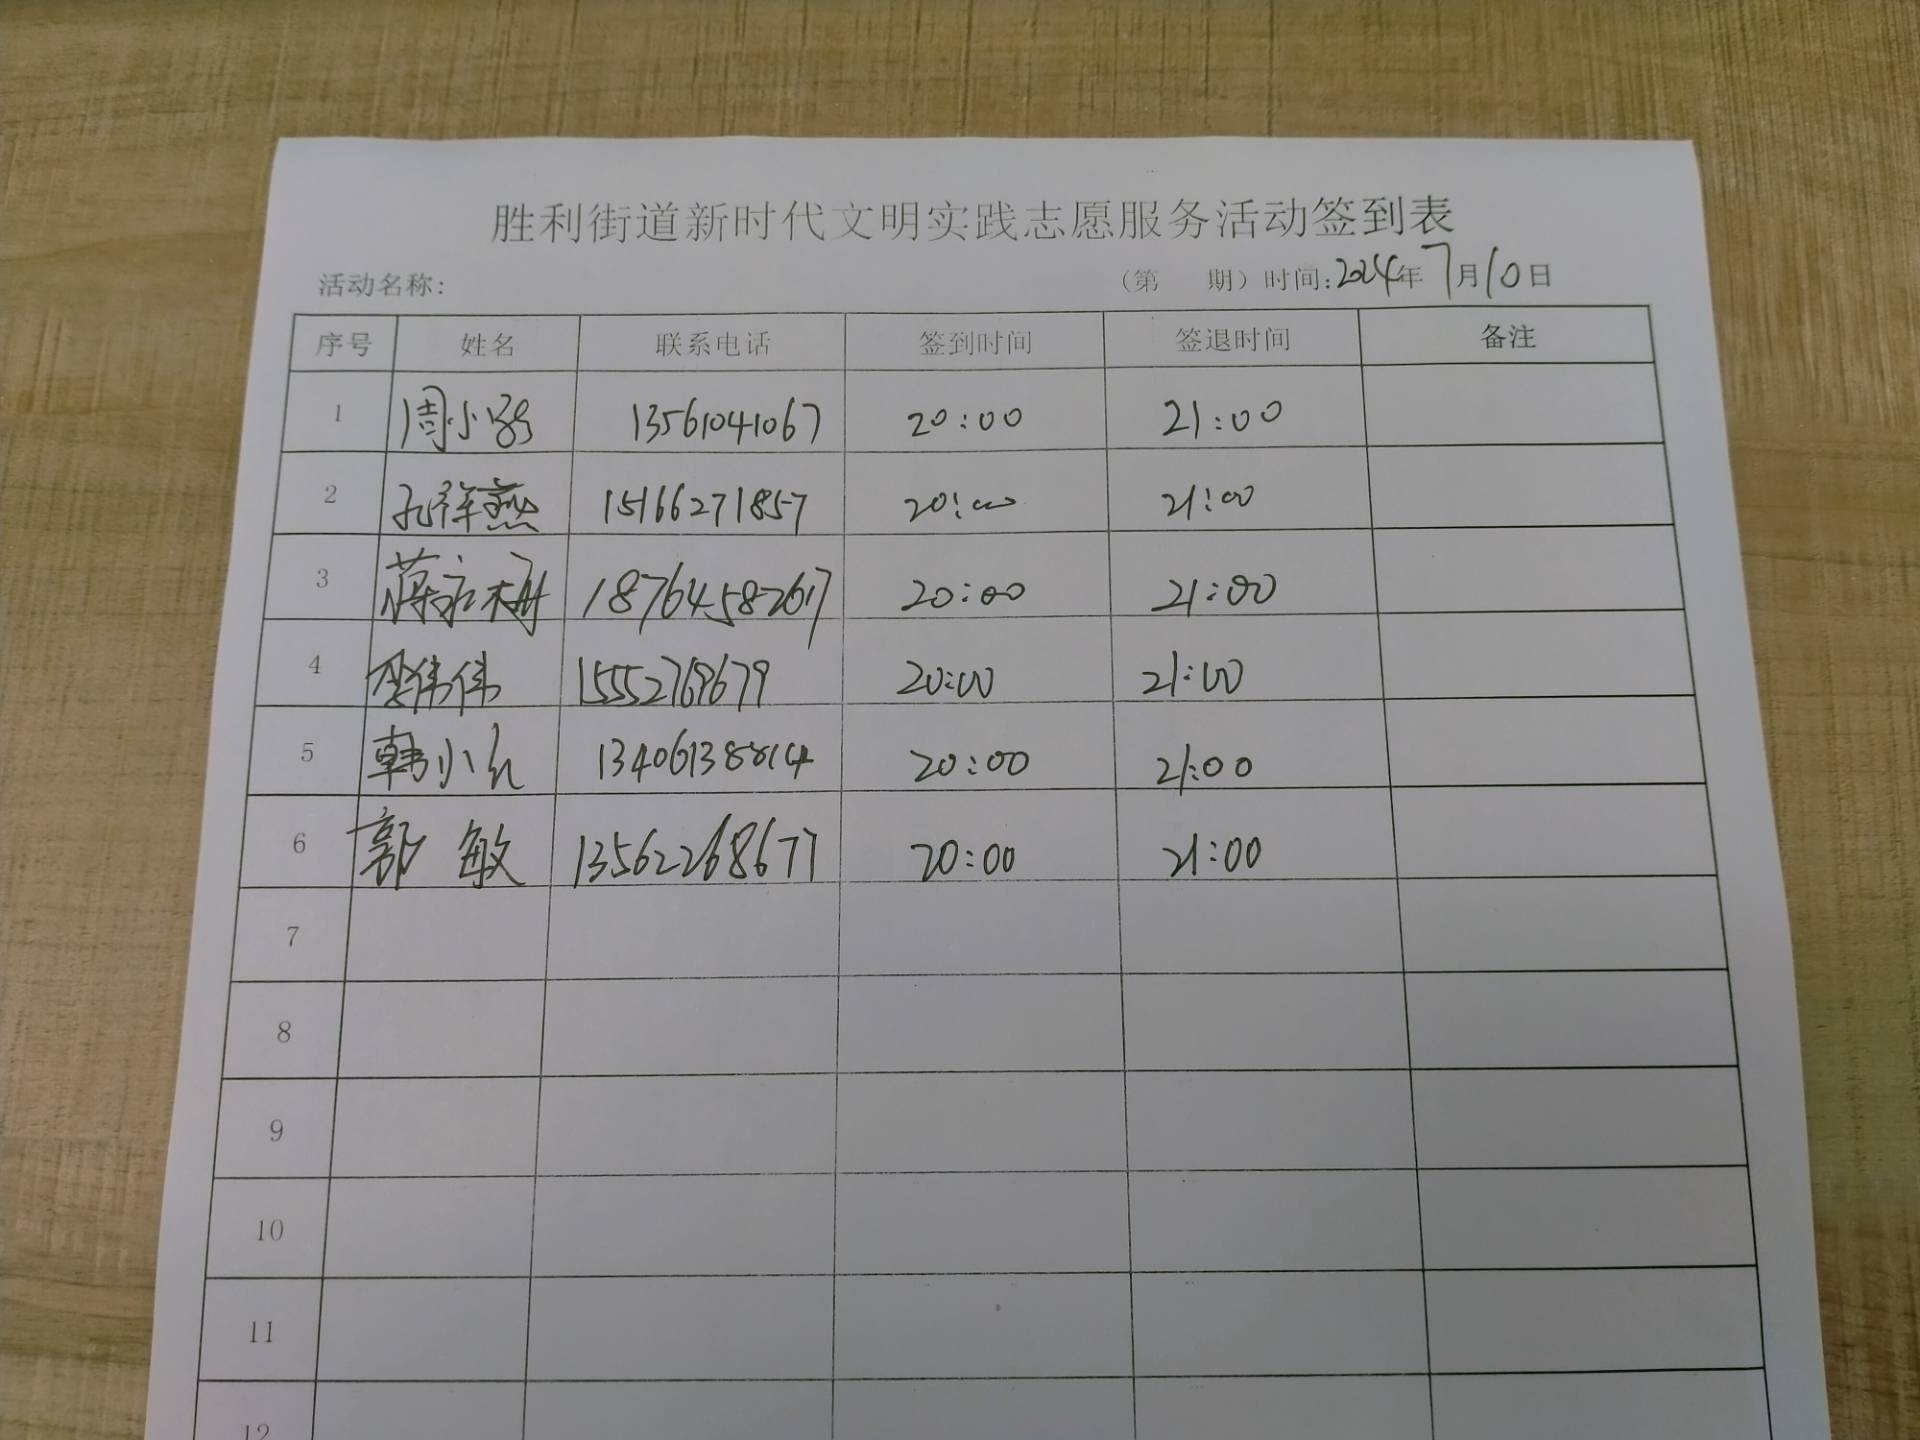 胜利街道新时代文明实践志愿服务活动签到表
活动名称: （第 期）时间:2024年7月10日
序号 姓名 联系电话 签到时间 签退时间 备注
1 周小 13561041067 20:00 21:00
2 孔祥燕 15166271857 20:00 21:00
3 蒋永梅 18764582617 20:00 21:00
4 李伟伟 15552769679 20:00 21:00
5 韩小红 13406138814 20:00 21:00
6 郭敏 13562268677 20:00 21:00
7
8
9
10
11
12